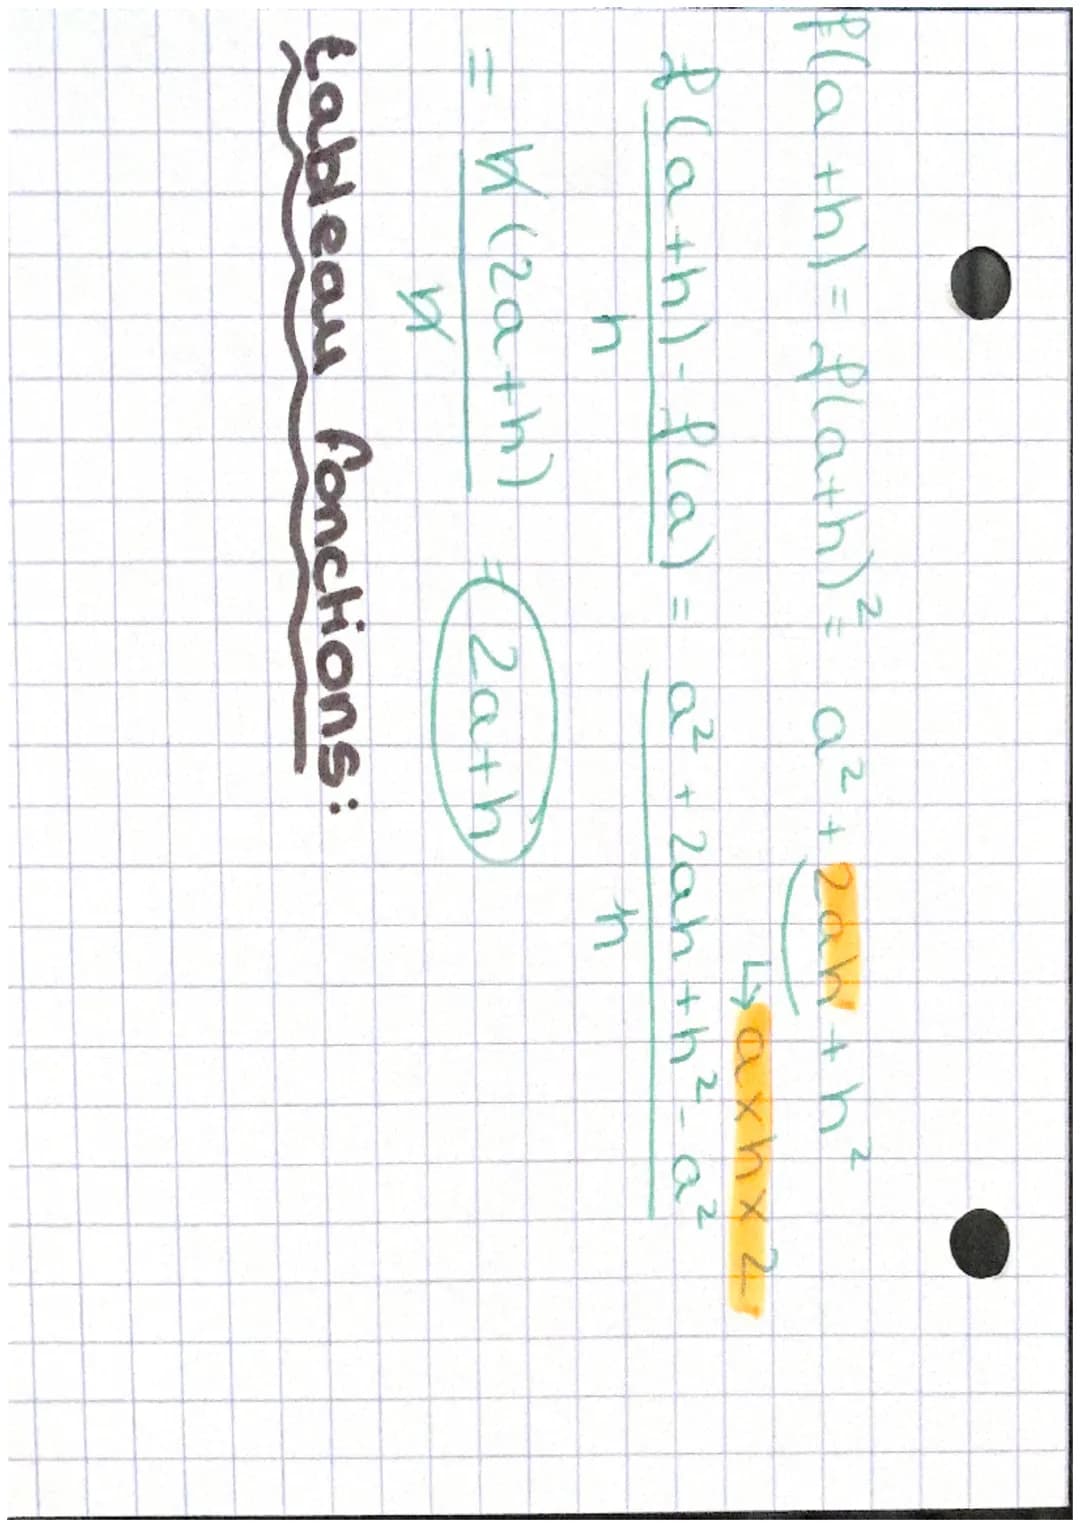 f(a+h) = f(a+h)² = a² + 2ah + h²
↳ a×h×2
f(a+h) - f(a) / h = a² + 2ah + h² - a² / h
= h(2a+h) / h = 2a+h
tableau fonctions: